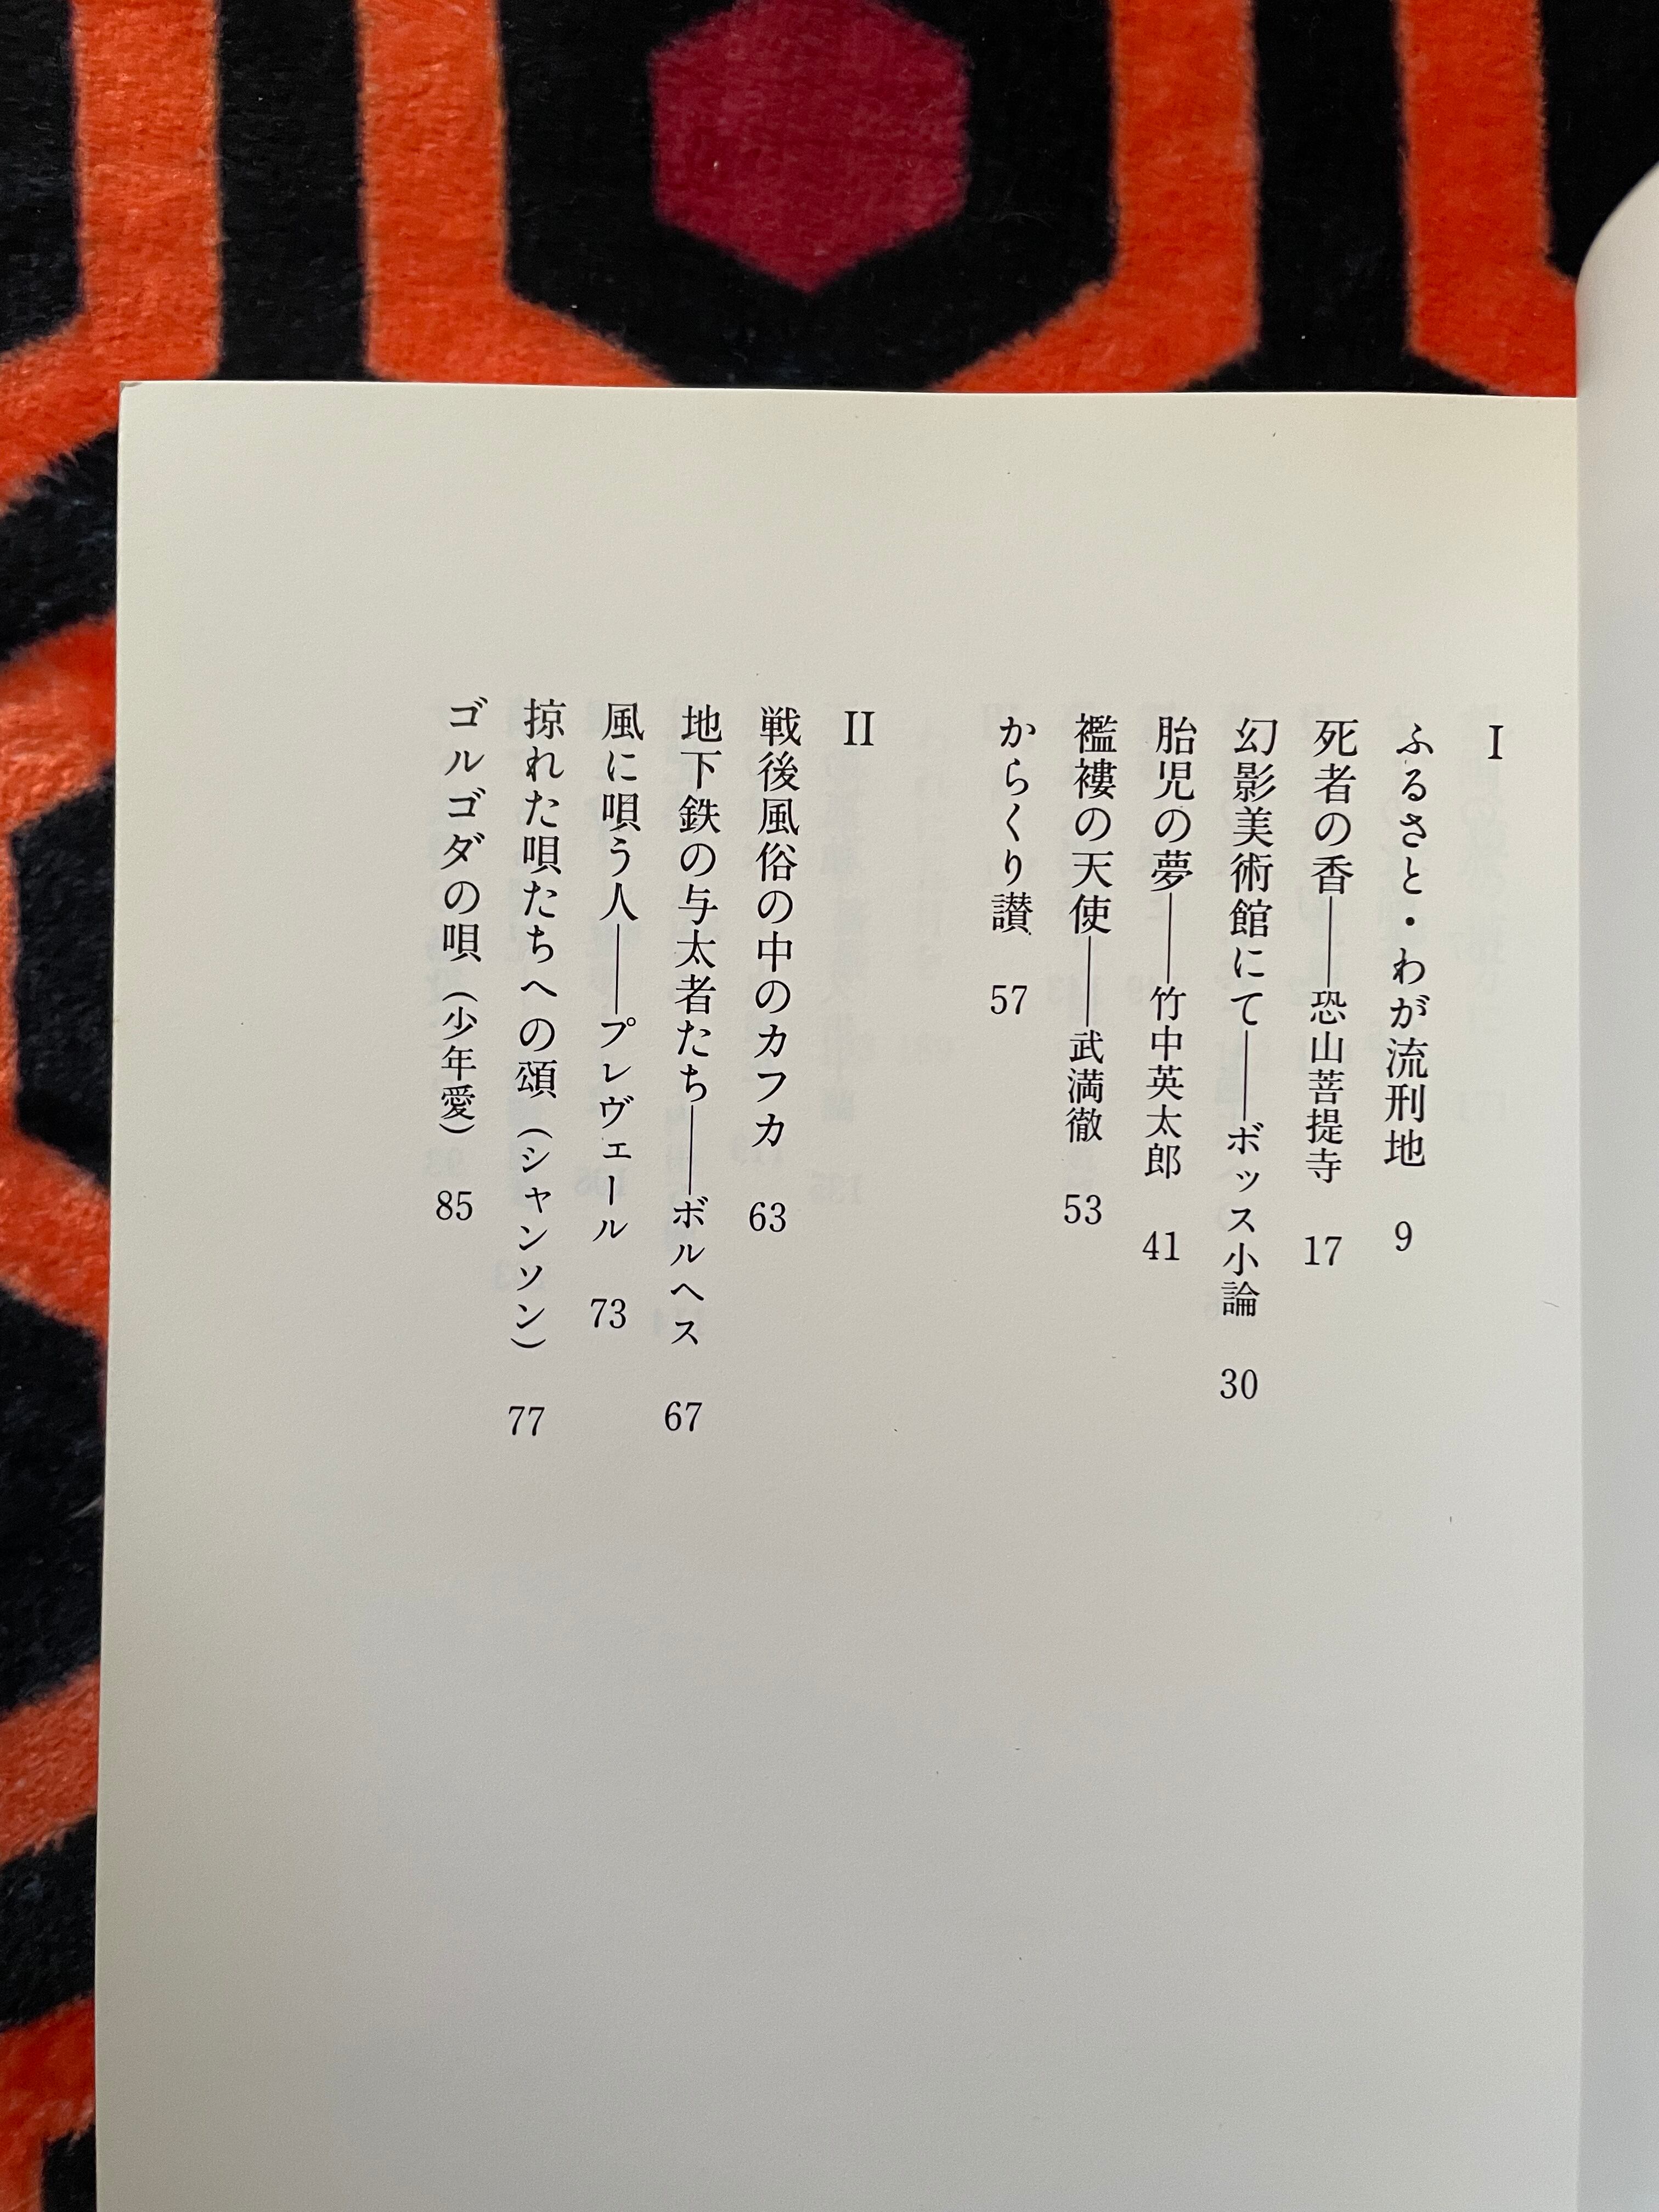 I
ふるさと・わが流刑地 9
死者の香——恐山菩提寺 17
幻影美術館にて——ボッス小論 30
胎児の夢——竹中英太郎 41
襤褸の天使——武満徹 53
からくり讃 57
II
戦後風俗の中のカフカ 63
地下鉄の与太者たち——ボルヘス 67
風に唄う人——プレヴェール 73
掠れた唄たちへの頌（シャンソン） 77
ゴルゴダの唄（少年愛） 85